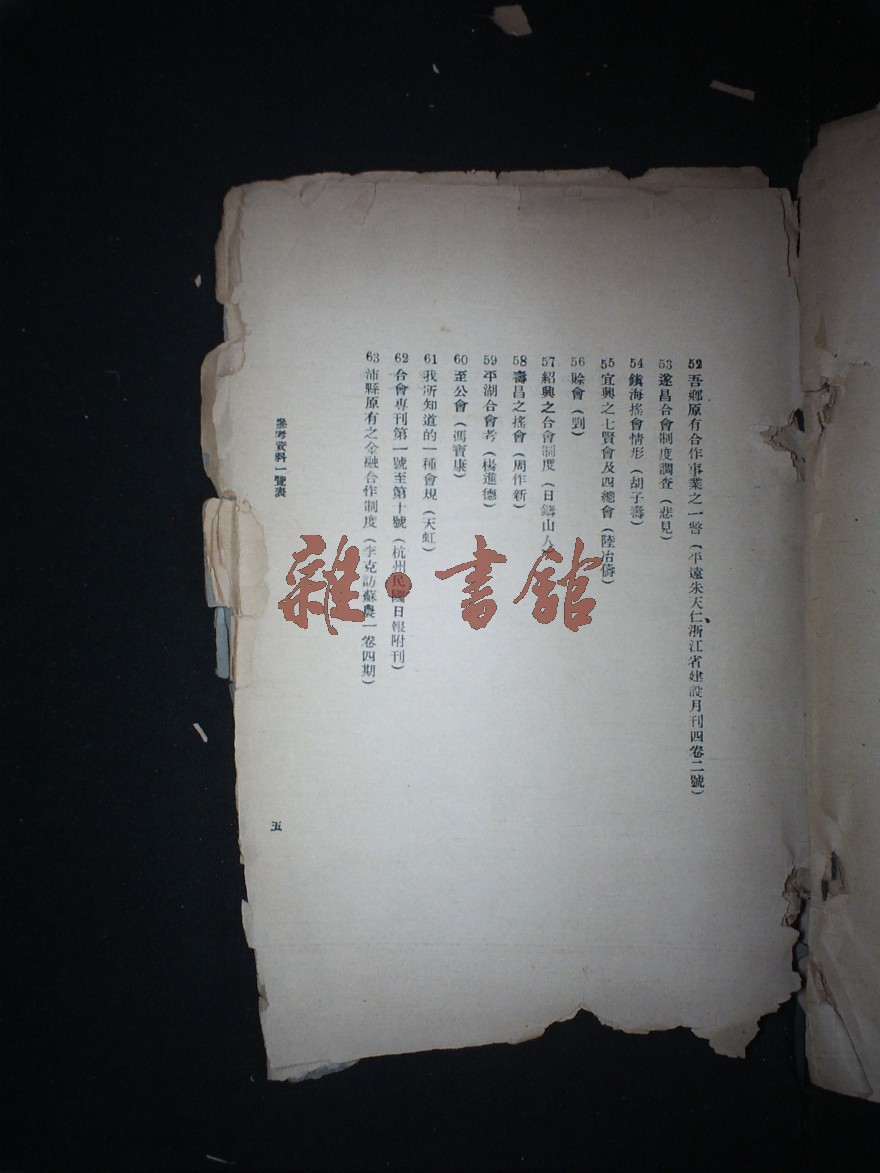 52吾鄉原有合作事業之一瞥(平遠朱天仁浙江省建設月刊四卷二號)
53遂昌合會制度調查(悲見)
54鎮海搖會情形(胡子壽)
55宜興之七賢會及四總會(陸冶儔)
56賒會(劉)
57紹興之合會制度(日鑄山人)
58壽昌之搖會(周作新)
59平湖合會考(楊進德)
60至公會(馮寶康)
61我所知道的一種會規(天虹)
62合會專刊第一號至第十號(杭州民國日報附刊)
63沛縣原有之金融合作制度(李克訪蘇農一卷四期)
參考資料一覽表
五
雜·書館